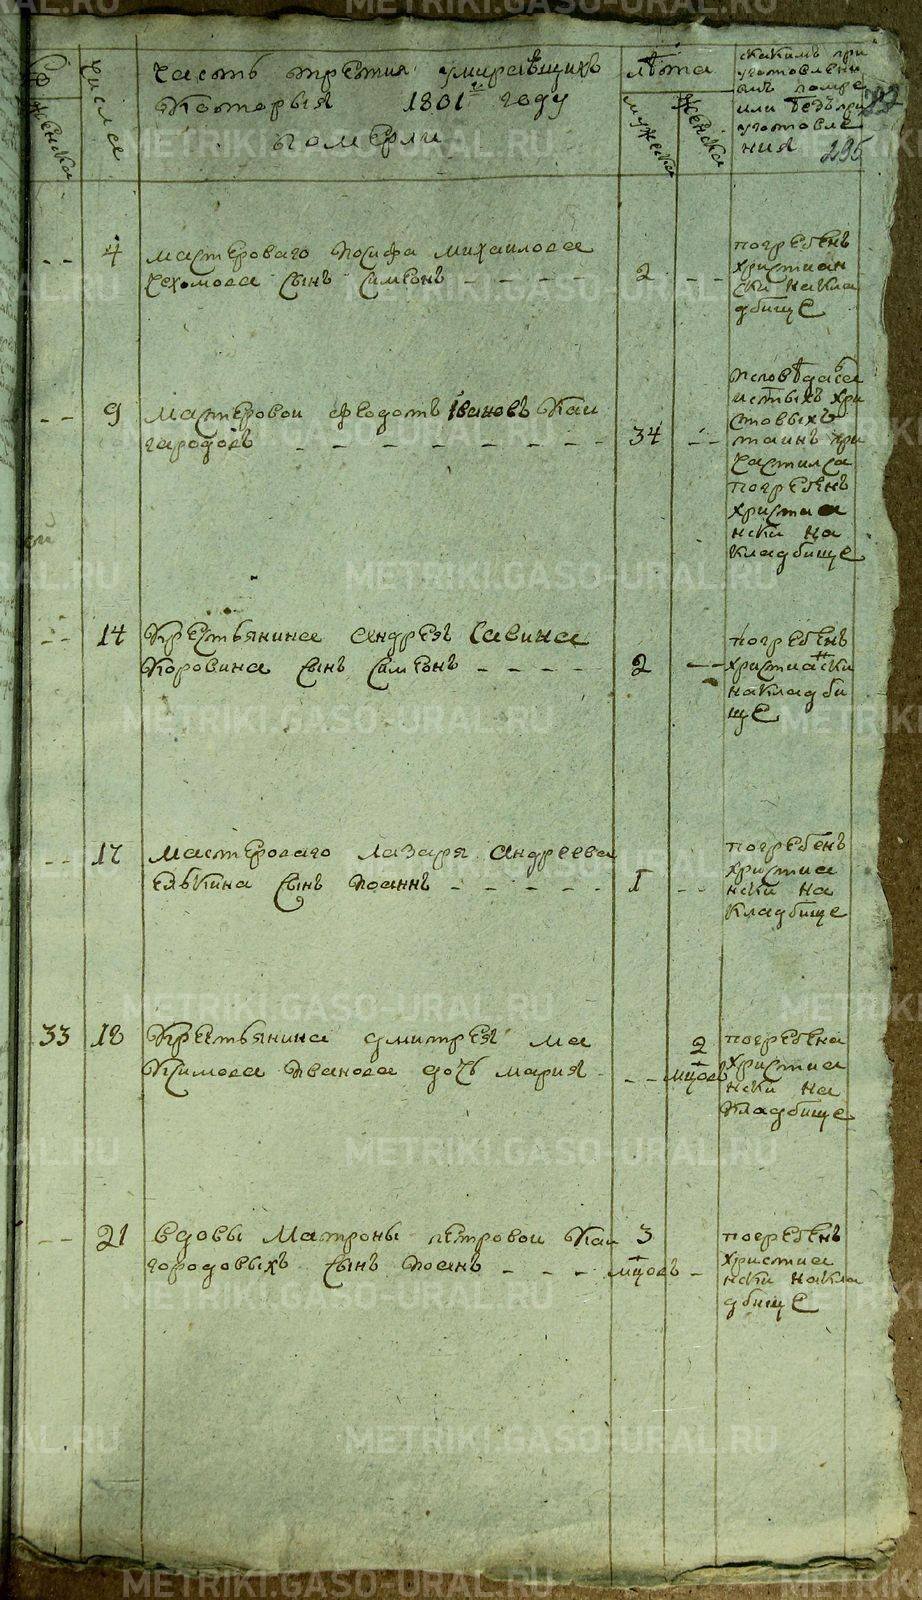 Часть третия умиравщихъ
Которыя 1801го году
померли
числа
женска
лѣта
мужска
женска
скакимъ при
уготовлени
омъ помре
или безъпри
уготовле
ния
295
4 мастероваго Иосифа михаилова
сынъ Симеонъ
2
погребенъ
христиан
ски накла
дбище
9 мастеровои Феодотъ Ивановъ Каи
городовъ
34
Исповѣдася
истыхъ хри
стовыхъ
таинъ при
частился
погребенъ
христиа
нски на
кладбище
14 Крестьянина андрея Савина
Коровина сынъ Симеонъ
2
погребенъ
христиански
накладби
ще
17 мастероваго лазаря андреева
елькина сынъ Иоаннъ
1
погребенъ
христиа
нски на
кладбище
33 18 Крестьянина дмитрея ма
ксимова Иванова дочь мария
2
мцовъ
погребена
христиа
нски на
Кладбище
21 вдовы Матроны петровои Каи
городовыхъ сынъ Иоанъ
3
мцовъ
погребенъ
христиа
нски накла
дбище
METRIKI.GASO-URAL.RU